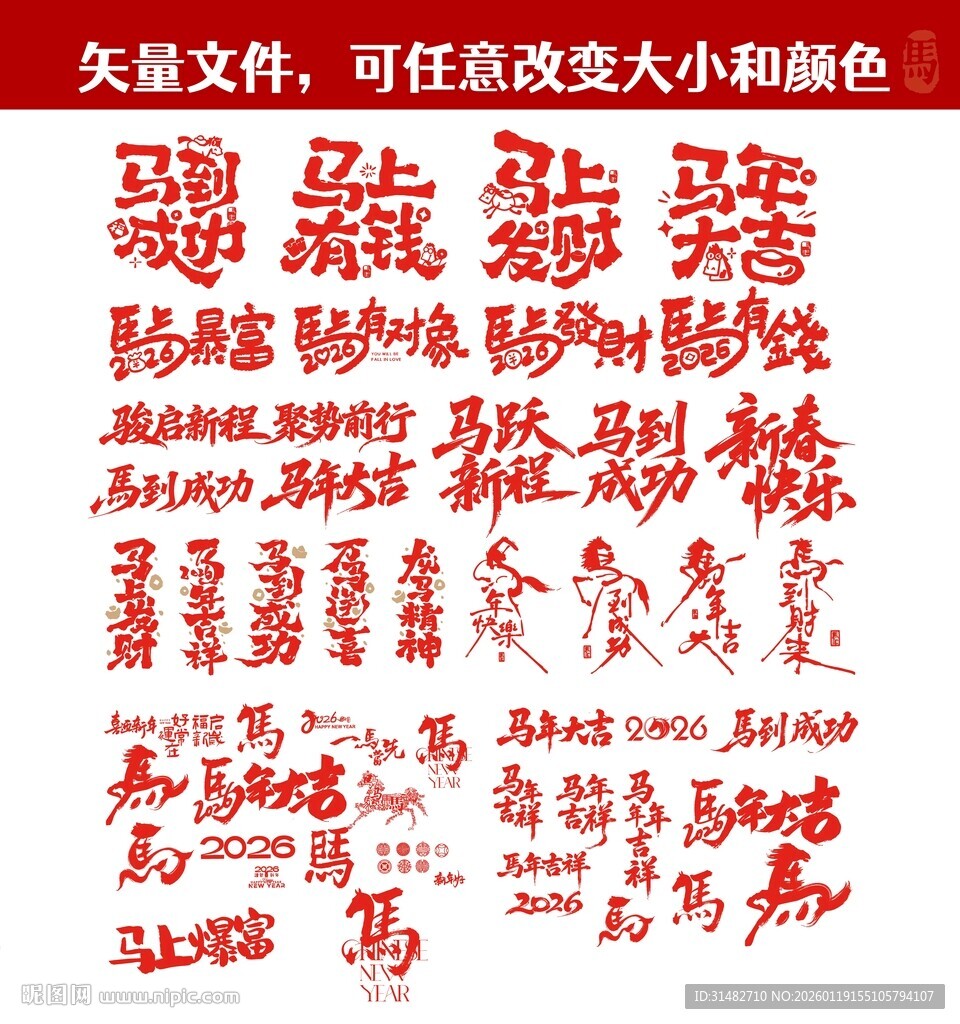 矢量文件，可任意改变大小和颜色
马到成功
马上有钱
马上发财
马年大吉
馬上暴富
2026
馬上有对象
2026
YOU WILL BE
FALL IN LOVE
馬上發財
2026
馬上有錢
2026
骏启新程 聚势前行
馬到成功 马年大吉
马跃新程
马到成功
新春快乐
马上发财
马年吉祥
2026
马到成功
万马送喜
龙马精神
年快樂
到成功
馬年大吉
馬到財来
喜迎新年
好運常在
福启新歲
馬
2026
HAPPY NEW YEAR
一馬當先
馬
CHINESE
NEW
YEAR
馬
馬年大吉
馬
2026
2026
NEW YEAR
馬
新年好
马上爆富
馬
CHINESE
NEW
YEAR
马年大吉 2026 馬到成功
马年吉祥
马年吉祥
马年年吉祥
馬年大吉
馬年吉祥
2026
馬
馬
馬
昵图网 www.nipic.com
ID:31482710 NO:20260119155105794107